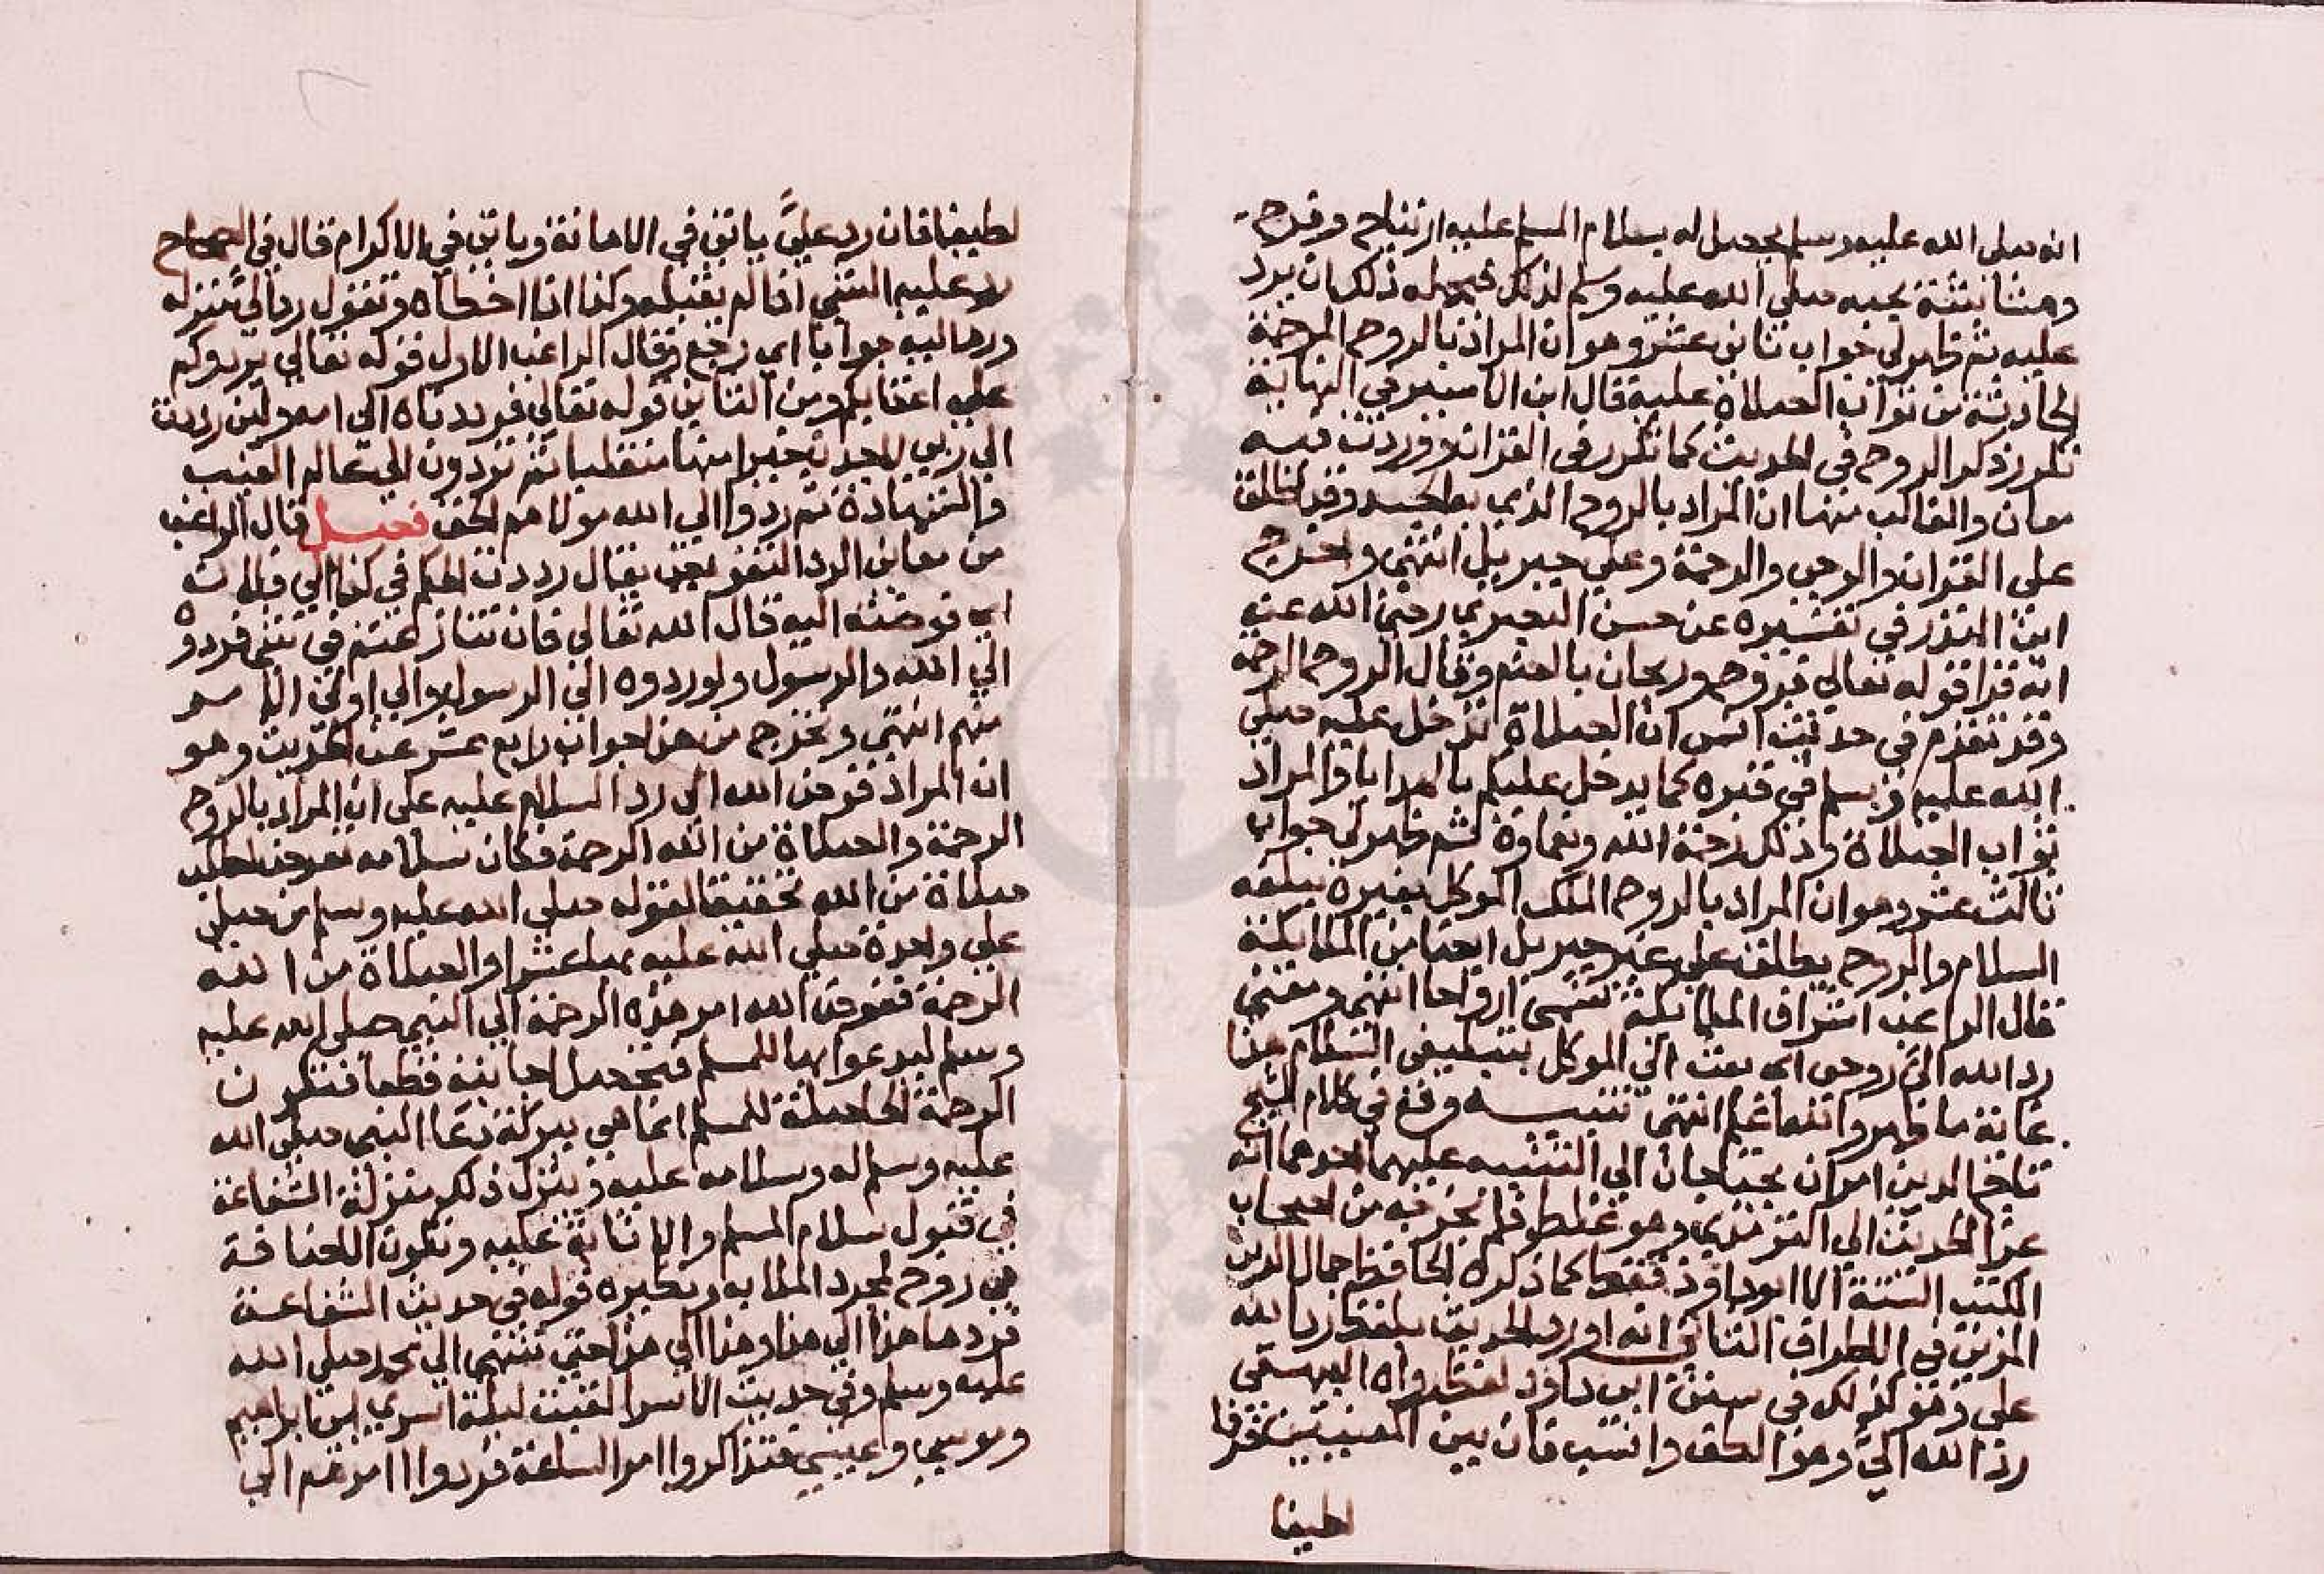 انه صلى الله عليه وسلم يحصل له بسلام المسلم عليه ارتياح وفرح
وهشاشة لحبه صلى الله عليه وسلم لذلك فيحمله ذلك ان يرد
عليه ثم ظهر لي جواب ثاني عشر وهو ان المراد بالروح الرحمة
الحادثة من ثواب الصلاة عليه قال ابن الاثير في النهاية
تكرر ذكر الروح في الحديث كما تكرر في القران ووردت فيه
معان والغالب منها ان المراد بالروح الذي به الجسد وقد اطلق
على القران والوحي والرحمة وعلى جبريل انتهى واخرج
ابن المنذر في تفسيره عن حسن البصري رضي الله عنه
انه قرا قوله تعالى فروح وريحان بالضم وقال الروح الرحمة
وقد تقدم في حديث انس ان الصلاة تدخل عليه صلى
الله عليه وسلم في قبره كما يدخل عليكم بالهدايا والمراد
ثواب الصلاة وذلك رحمة الله ونعاوه ثم ظهر لي جواب
ثالث عشر وهو ان المراد بالروح الملك الموكل بقبره يبلغه
السلام والروح يطلق على غير جبريل ايضا من الملايكة
قال الراغب اشراف الملائكة تسمى ارواحا انتهى ومعنى
رد الله الي روحي اي بعث الي الموكل بتبليغي السلام هذا
غاية ما ظهر والله اعلم انتهى تنبيه وقع في كلام الشيخ
تاج الدين امران يحتاجان الى التنبيه عليهما احدهما انه
عزا الحديث الى الترمذي وهو غلط فلم يخرجه من اصحاب
الكتب الستة الا ابو داود فقط كما ذكره الحافظ جمال الدين
المزي في الاطراف الثاني انه اورد الحديث بلفظ رد الله
علي وهو كذلك في سنن ابي داود لفظ رواه البيهقي
رد الله الي وهو الطف وانسب فان بين المعنيين فرقا
لطيفا
لطيفا فان رد علي ياتي في الاهانة وياتي في الاكرام قال في الصحاح
رد عليه الشي اذا لم يقبله وكذا اذا اخطاه وتقول رد الى منزله
ورد اليه جوابا اي رجع وقال الراغب الاول قوله تعالى يردوكم
على اعقابكم ومن الثاني قوله تعالى فرددناه الى امه ولئن رددت
الى ربي لاجدن خيرا منها منقلبا ثم تردون الى عالم الغيب
والشهادة ثم ردوا الى الله مولاهم الحق فصل قال الراغب
من معاني الرد التفويض يقال رددت الحكم في كذا الى فلان
اي فوضته اليه قال الله تعالى فان تنازعتم في شي فردوه
الى الله والرسول ولو ردوه الى الرسول والى اولي الامر
منهم انتهى ويخرج من هذا جواب رابع عشر عن الحديث وهو
ان المراد فوض الله الي رد السلام عليه على ان المراد بالروح
الرحمة والصلاة من الله الرحمة فكان سلامه تعرض لطلب
صلاة من الله تحقيقا لقوله صلى الله عليه وسلم من صلى
علي واحدة صلى الله عليه بها عشرا والصلاة من الله
الرحمة ففوض الله امر هذه الرحمة الى النبي صلى الله عليه
وسلم ليدعو بها للمسلم فيحصل اجابته قطعا فتكون
الرحمة الحاصلة للمسلم انما هي ببركة دعا النبي صلى الله
عليه وسلم له وسلامه عليه وينزل ذلك منزلة الشفاعة
في قبول سلام المسلم والاثابة عليه وتكون الاضافة
في روح لمجرد الملابه ونظيره قوله في حديث الشفاعة
فردها هذا الى هذا وهذا الى هذا حتى تنتهي الى محمد صلى الله
عليه وسلم وفي حديث الاسرا لقيت ليلة اسري بي ابراهيم
وموسى وعيسى فتذاكروا امر الساعة فردوا امرهم الى